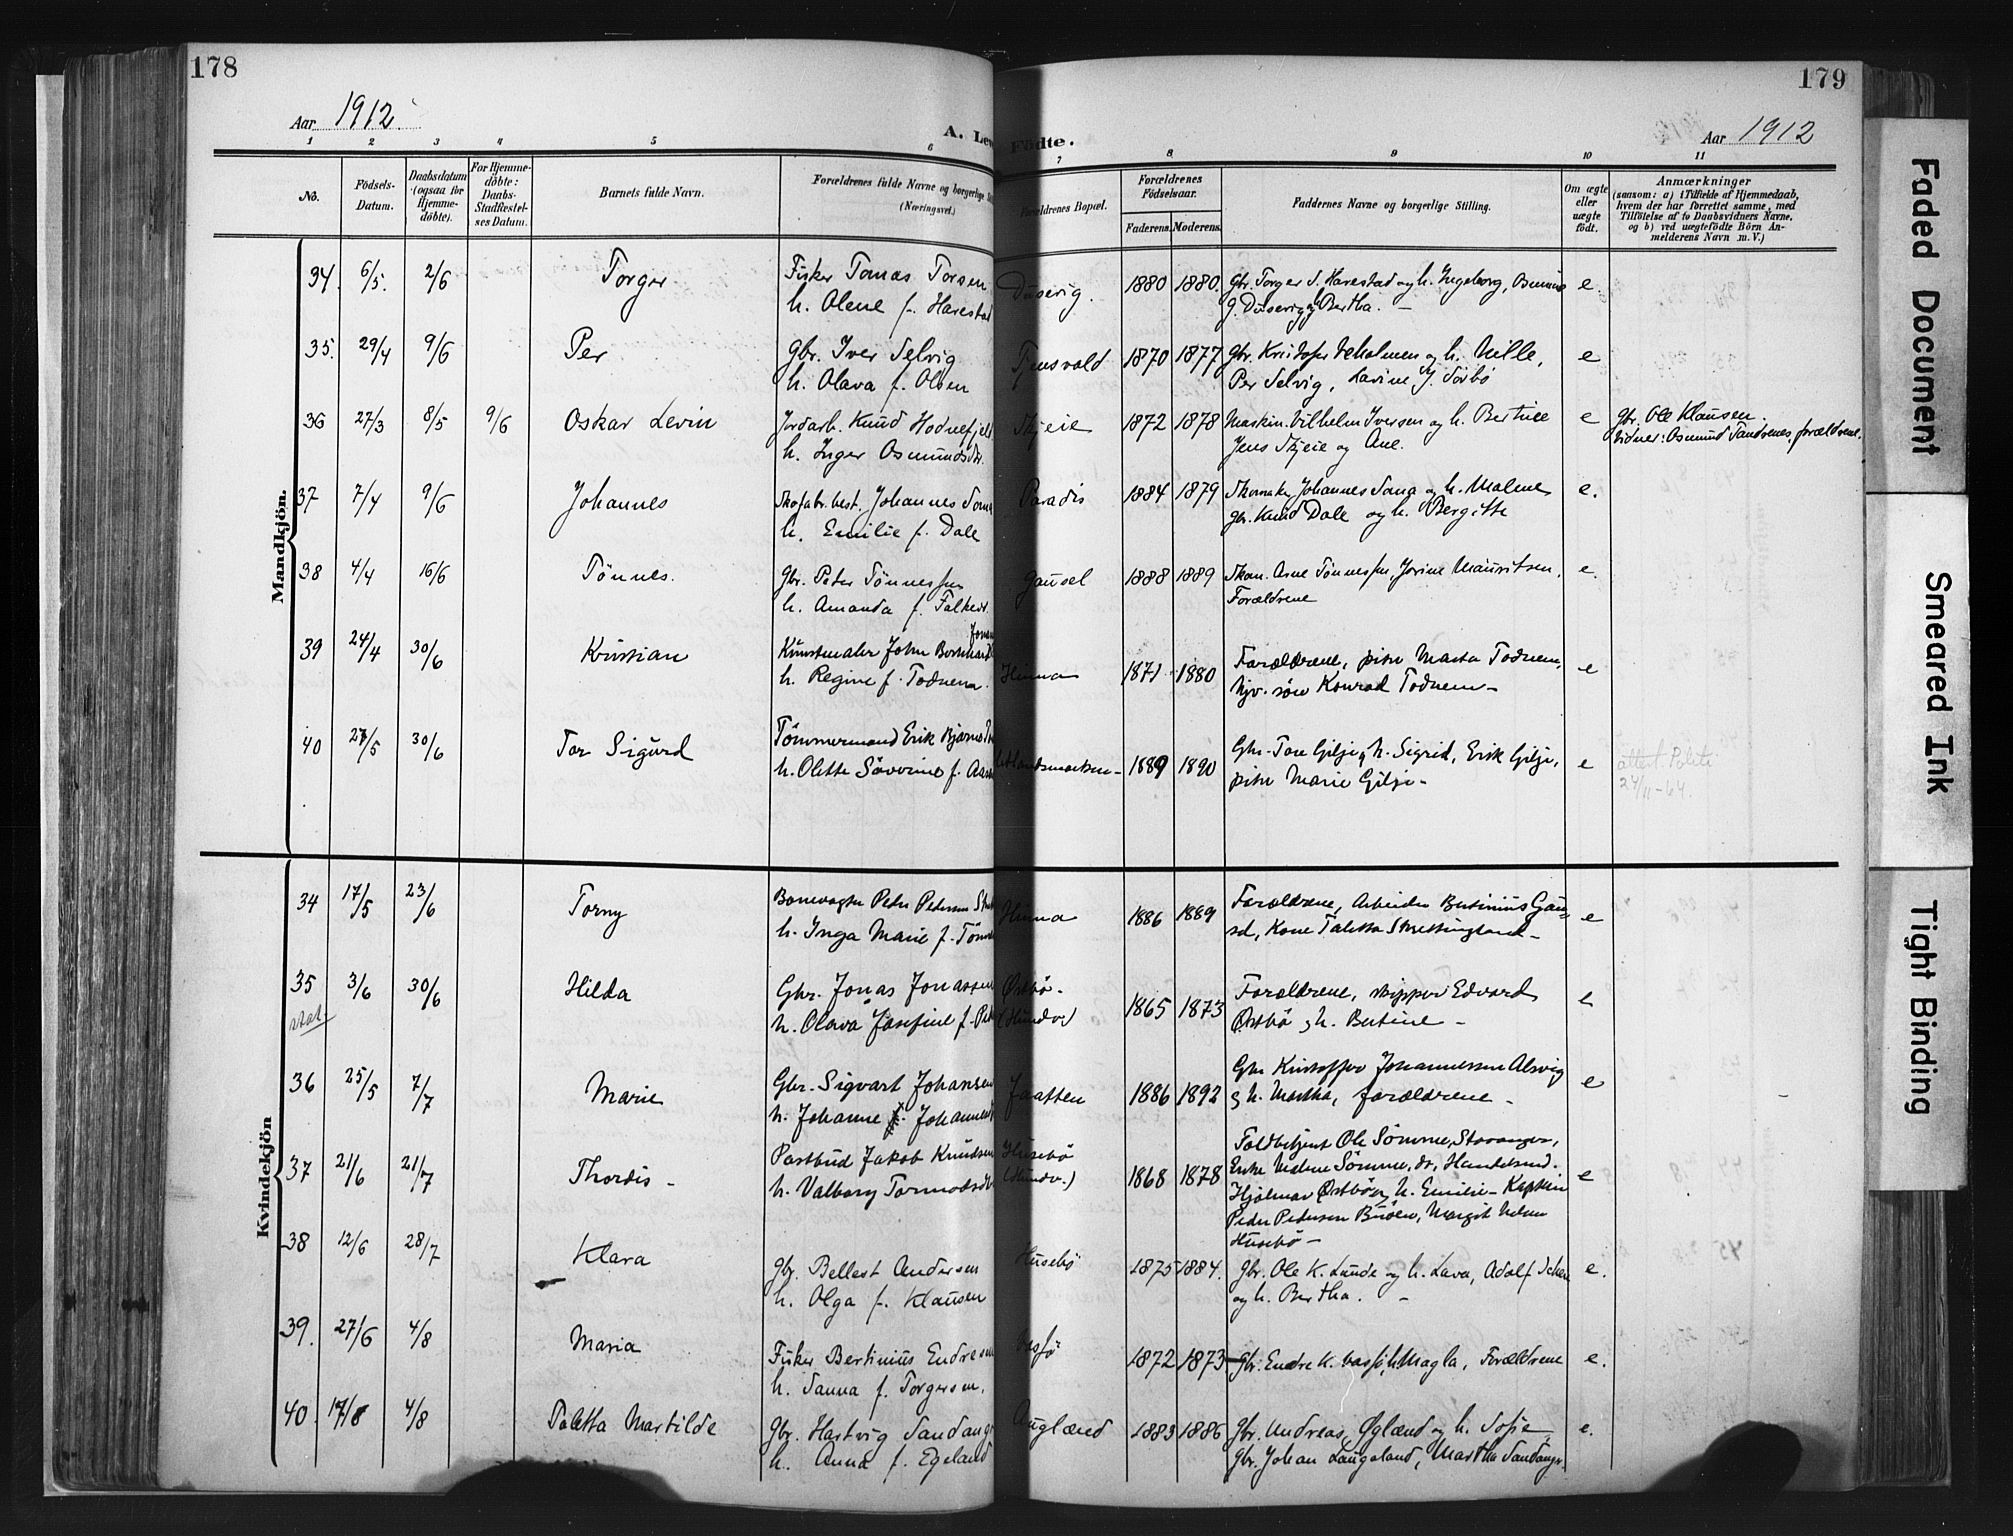 178
179
Aar 1912.
A. Lev
Födte.
Aar 1912
1 2 3 4 5 6 7 8 9 10 11
No.
Födsels-
Datum.
Daabsdatum
(ogsaa för
Hjemme-
döbte).
For Hjemme-
döbte:
Daabs-
Stadfestel-
ses Datum.
Barnets fulde Navn.
Forældrenes fulde Navne og borgerlige
(Næringsvei.)
Forældrenes Bopæl.
Forældrenes
Födselsaar.
Faderens. Moderens.
Faddernes Navne og borgerlige Stilling.
Om ægte
eller
uægte
födt.
Anmærkninger
(saasom: a) i Tilfælde af Hjemmedaab,
hvem der har forrettet samme, med
Tilföielse af to Daabsvidners Navne,
og b) ved uægtefödte Börn An-
melderens Navn m. V.)
Mandkjön.
34. 6/5. 2/6 Torger Fisker Tomas Torsen Dusevig. 1880 1880 Gbr. Torger S. Harestad og h. Ingeborg, e.
h. Olene f. Harestad G. Dusevig og Bertha. —
35. 29/4 9/6 Per Gbr. Iver Selvig Tjensvold 1870 1877 Gbr. Kristofer Veholmen og h. Nille, e
h. Olava f. Olsen Per Selvig, Lavine J. Sörbö
36 27/3 8/5 9/6 Oskar Levin Jordarb. Knud Hodnefjell 1872 1878 Maskin. Vilhelm Iversen og h. Bertine e Gbr. Ole Klausen.
h. Inger Osmundsdtr. Jens og Ane. Vidner: Osmund Tandrenes, forældrene.
37 7/4 9/6 Johannes Skofabr.best. Johannes Paradis 1884 1879 Skomaker Johannes Sana og h. Malene e.
h. Emilie f. Dale gbr. Knud Dale og h. Bergitte
38 4/4 16/6 Tönnes. Gbr. Peter Tönnessen Gausel 1888 1889 Skom. Arne Tönnessen, Jorine Mauritsen, e.
h. Amanda f. Falkeid. Forældrene
39 24/4 30/6 Kristian Kunstmaler John Bernhard Hinna 1871 1880 Forældrene, pike Marta Todnem, e
h. Regine f. Todnem. Konrad Todnem —
40 27/5 30/6 Tor Sigurd Tömmermand Erik Bjarne 1889 1890 Gbr. Tore Gilje og h. Sigrid, Erik Gilje, e attest. Politi
h. Olette Söverine f. pike Marie Gilje — 24/11-64.
Kvindekjön
34 17/5 23/6 Torny Banevogter Peder Pedersen Hinna 1886 1889 Forældrene, Arbeider Bertinius Gau- e
h. Inga Marie f. sel, Kone Taletta —
35 3/6 30/6 Hilda Gbr. Jonas Jonassen Østbö. 1865 1873 Forældrene, skipper Edvard e
h. Olava Josefine f. (Hundv.) Østbö og h. Bertine —
36 25/5 7/7 Marie Gbr. Sigvart Johansen Jaatten 1886 1892 Gbr. Kristoffer Johannessen e
h. Johanne f. Johannes og h. Martha, forældrene —
37 21/6 21/7 Thordis — Postbud Jakob Knudsen Husebö (Hundv.) 1868 1878 Toldbetjent Ole Sömme, Stavanger, e
h. Valborg Tormodsdtr Enke Sömme, do, Handelsmd.
Hjalmar Østbö og h. Emilie — Kaptein
Peder Pedersen Margit
Husebö —
38 12/6 28/7 Klara gbr. Bellest Andersen Husebö 1875 1884. Gbr. Ole K. Lunde og h. Lava, Adolf e.
h. Olga f. Klausen og h. Bertha. —
39. 27/6 4/8 Maria Fisker Bertinius Endresen 1872 1873 Gbr. Endre K. h. Magla, Forældrene e.
h. Sanna f. Torgersen.
40. 17/6 4/8 Taletta Martilde gbr. Hartvig Sandanger Auglænd 1883 1886 Gbr. Andreas Øglænd og h. Sofie e.
h. Anna f. Egeland Gbr. Johan Laugaland, Martha Sandanger.
Faded Document
Smeared Ink
Tight Binding